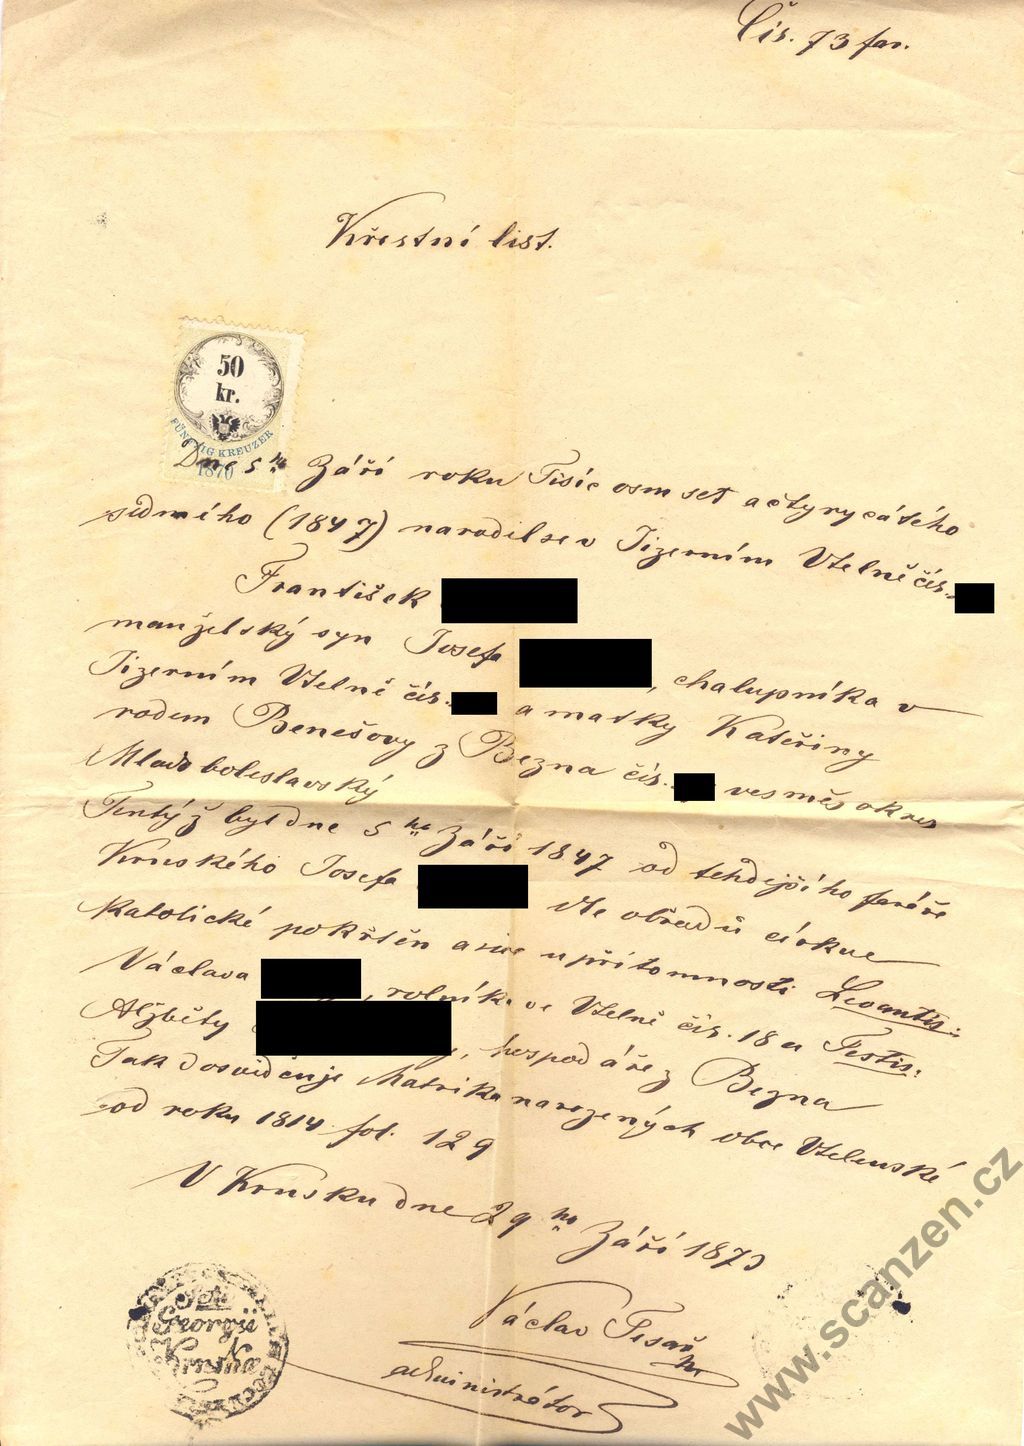 Čís. 73 far.
Křestní list.
50
kr.
FÜNFZIG KREUZER
1870
Dne 5ho Září roku Tisíc osm set a čtyrycátého
sedmího (1847) narodil se v Jizerním Vtelně čís.
František
manželský syn Josefa , chalupníka v
Jizerním Vtelně čís. a matky Kateřiny
rodem Benešovy z Bezna čís. vesměs okres
Mladoboleslavský
Tentýž byl dne 5ho Září 1847 od tehdejšího faráře
Krnského Josefa dle obřadů církve
Katolické pokřtěn a sice u přítomnosti Levantis:
Václava , rolníka ve Vtelně čís. 18 a Testis:
Alžběty , hospodáře z Bezna
Tak dosvědčuje Matrika narozených obce Vtelenské
od roku 1814 fol. 129
V Krnsku dne 29ho Září 1873
Václav Tesař
administrátor
Georgii
www.scanzen.cz